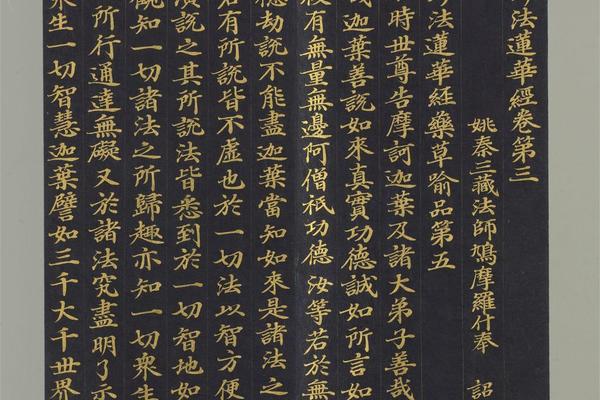 法蓮華經卷第三
姚秦三藏法師鳩摩羅什奉 詔
法蓮華經藥草喻品第五
時世尊告摩訶迦葉及諸大弟子善哉
哉迦葉善說如來真實功德誠如所言如
復有無量無邊阿僧祇功德汝等若於無
億劫說不能盡迦葉當知如來是諸法之
若有所說皆不虛也於一切法以智方便
演說之其所說法皆悉到於一切智地如
觀知一切諸法之所歸趣亦知一切眾生
所行通達無礙又於諸法究盡明了示
眾生一切智慧迦葉譬如三千大千世界